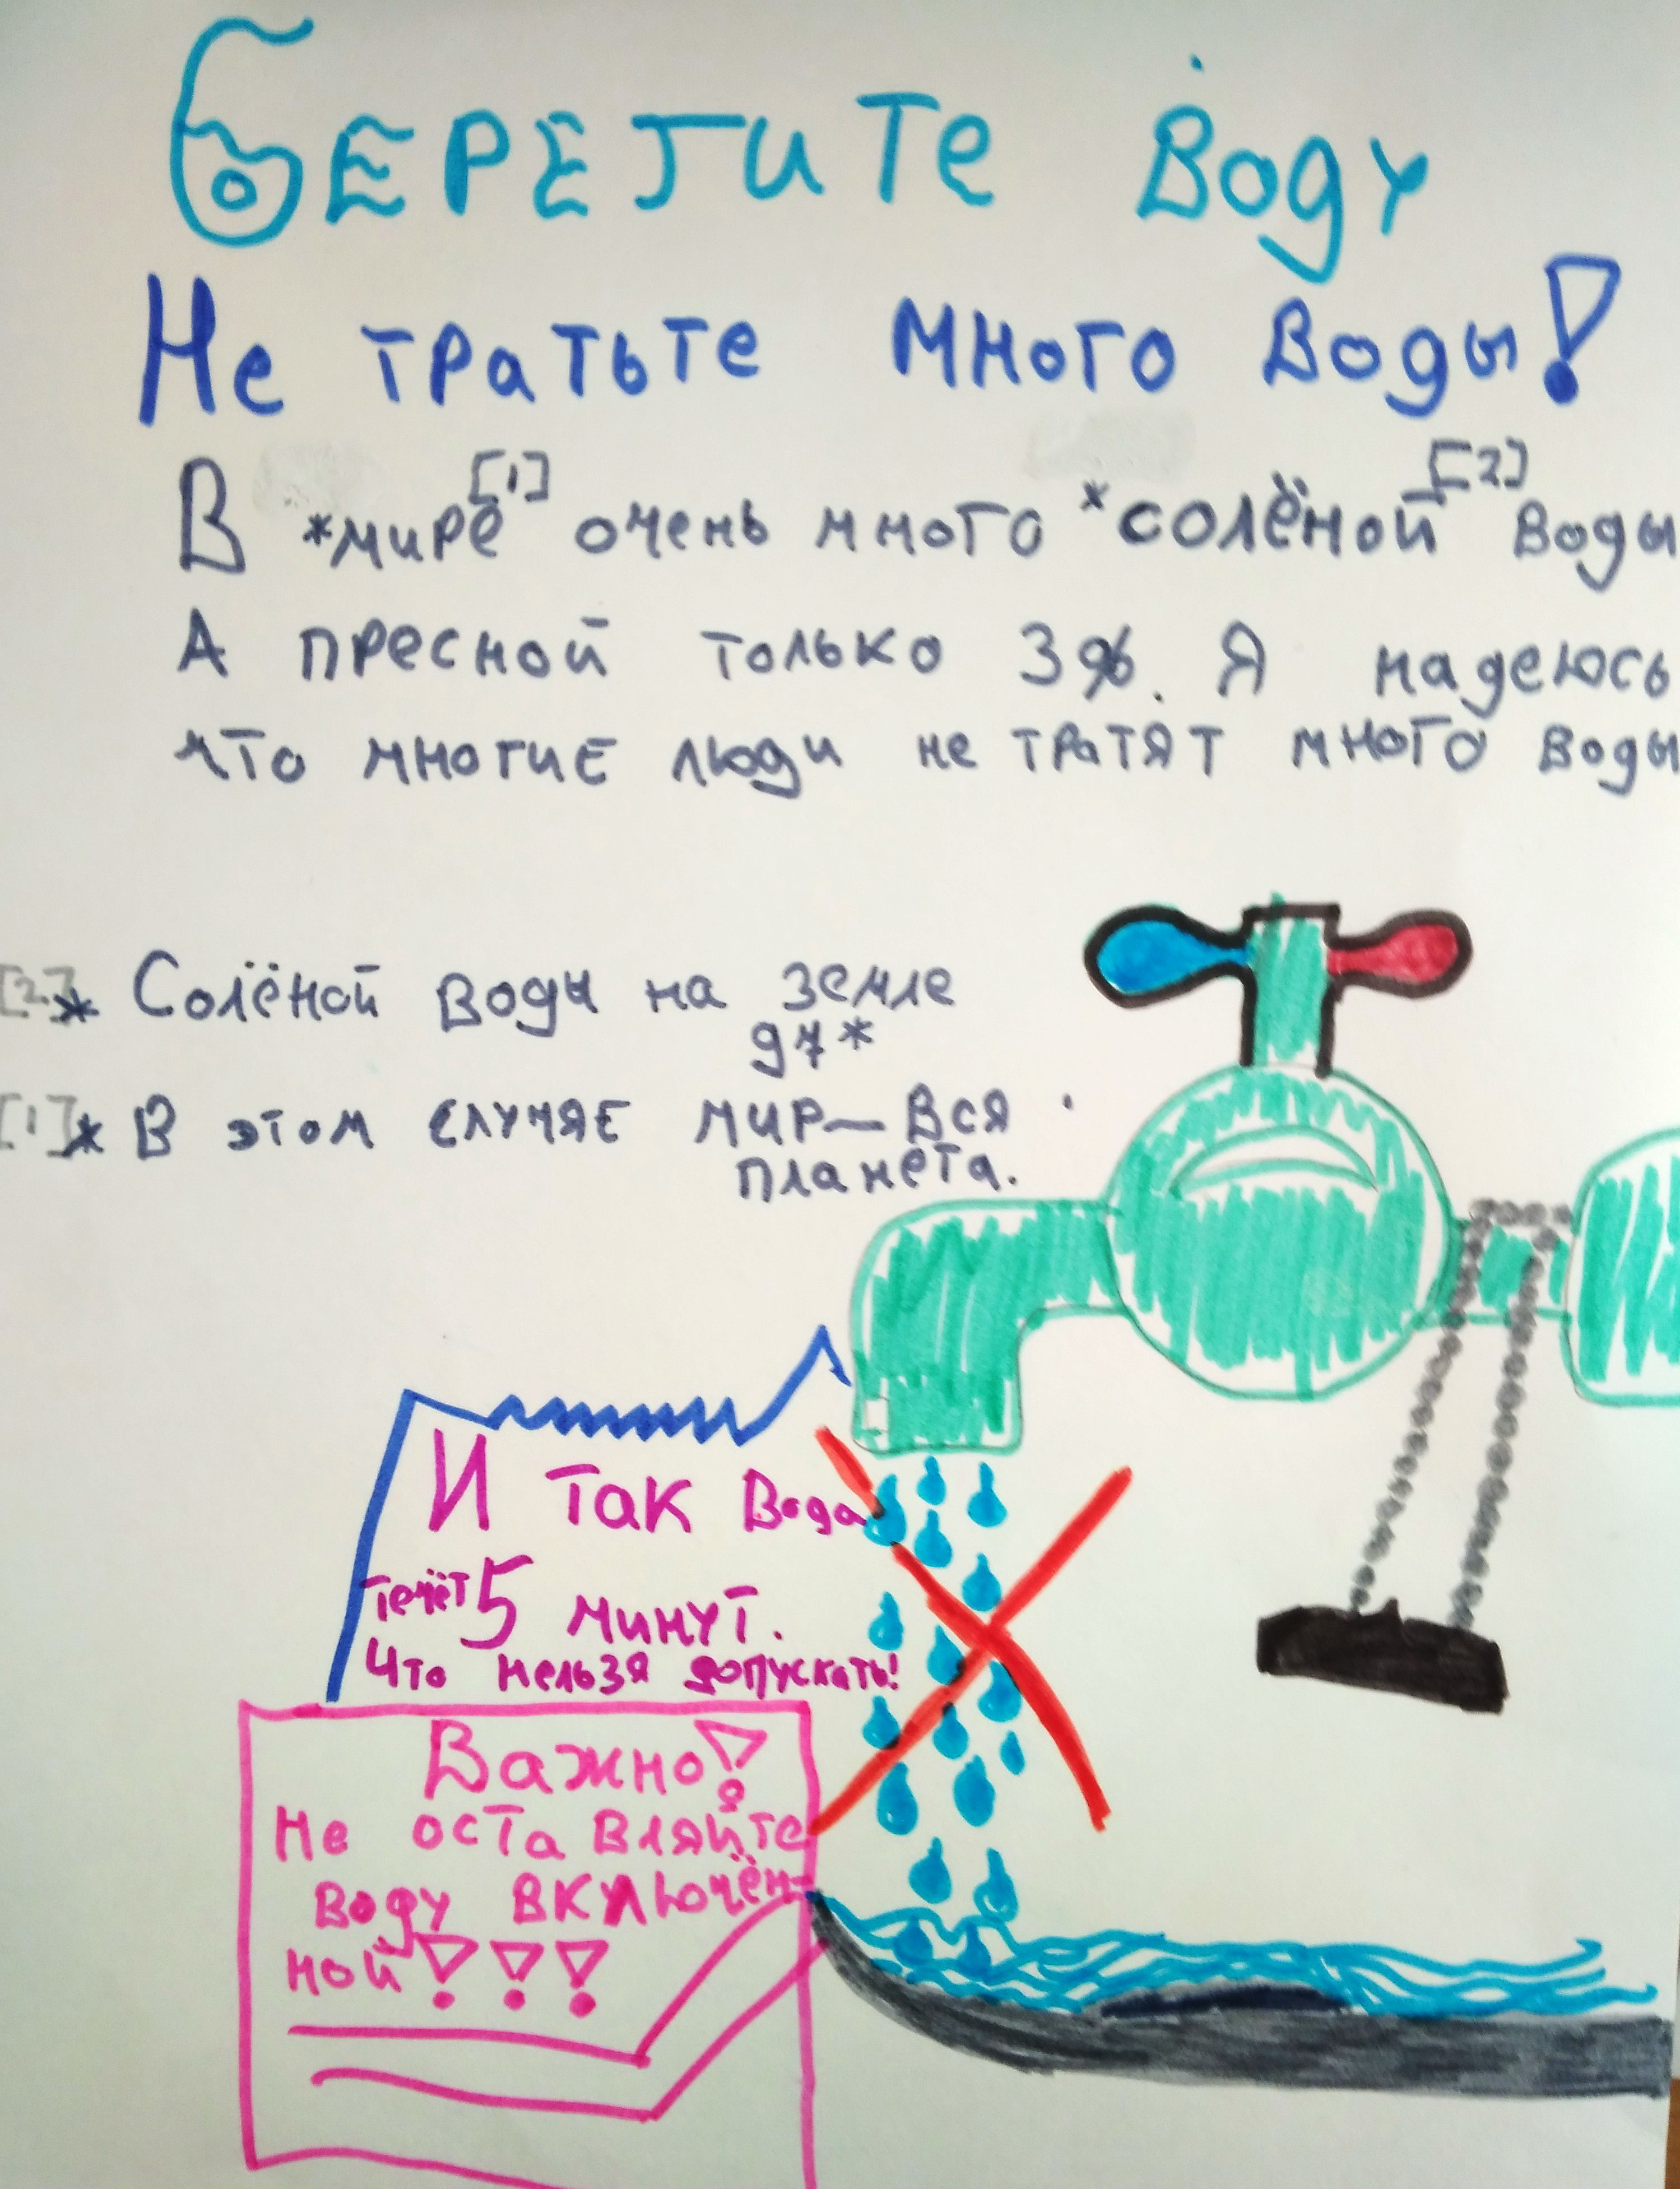 Берегите Воду
Не тратьте много воды!
В *мире[1] очень много *солёной[2] воды
А пресной только 3%. Я надеюсь
что многие люди не тратят много воды
[2]* Солёной воды на земле
97*
[1]* В этом случяе мир—вся
планета.
И так вода
течёт 5 минут.
Что нельзя допускать!
Важно!
Не оставляйте
воду включён-
ной!!!